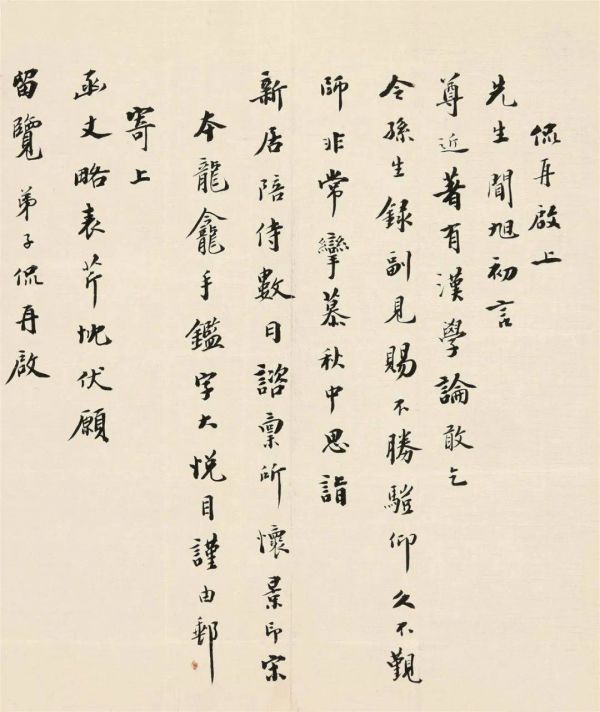 侃再啟上
先生聞旭初言
尊近著有漢學論敢乞
令孫生錄副見賜不勝仰久不覲
師非常攣慕秋中思詣
新居陪侍數日諮稟所懷景印宋
本龍龕手鑑字大悅目謹由郵
寄上
函丈略表芹忱伏願
留覽弟子侃再啟